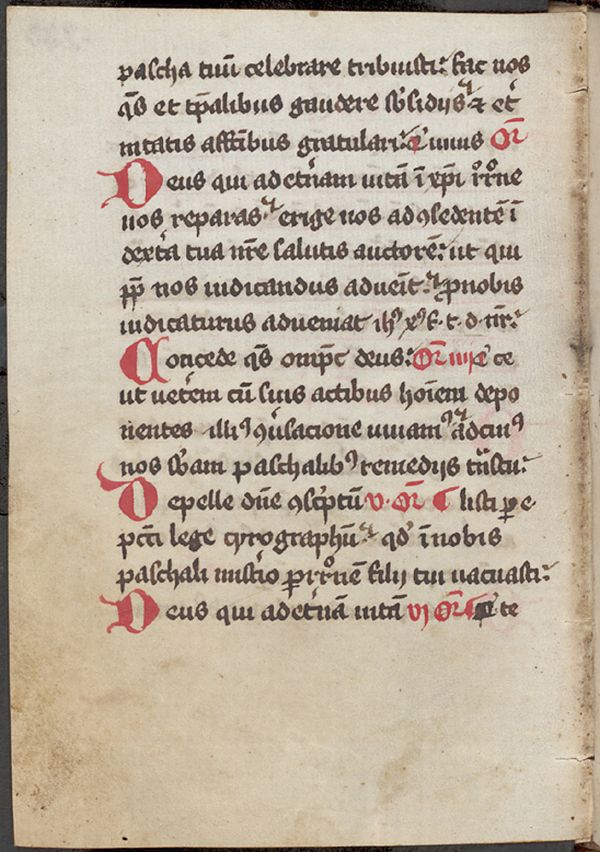 pascha tuū celebrare tribuisti: fac nos
qs̄ et tp̄alibus gaudere sb̄sidijs ⁊ et̄
nitatis affc̄ibus gratulari: unius Or̄
Deus qui ad etn̄am uitā ī xp̄i rr̄one
nos reparas erige nos ad ꝯsedentē ī
dext̄a tua nr̄e salutis auctorē: ut qui
ꝓp̄ nos iudicandus adueīt: ꝓ nobis
iudicaturus adueniat ih̄s xp̄s f. t. d. nr̄:
Concede qs̄ omp̄c deus: Or̄ iiij ce
ut uet̄em cū suis actibus hoīem depo
nentes illiꝰ ꝯūsacione uiuamꝰ ad cuiꝰ
nos sb̄am paschalibꝰ remedijs tn̄stu:
Depelle dn̄e ꝯsc̄ptū v. Or̄ listi ꝑ e
pcc̄i lege cyrographū: qd̄ ī nobis
paschali mistīo ꝑ rr̄onē filij tui uacuasti:
Deus qui ad et̄nā uitā vj Or̄ te